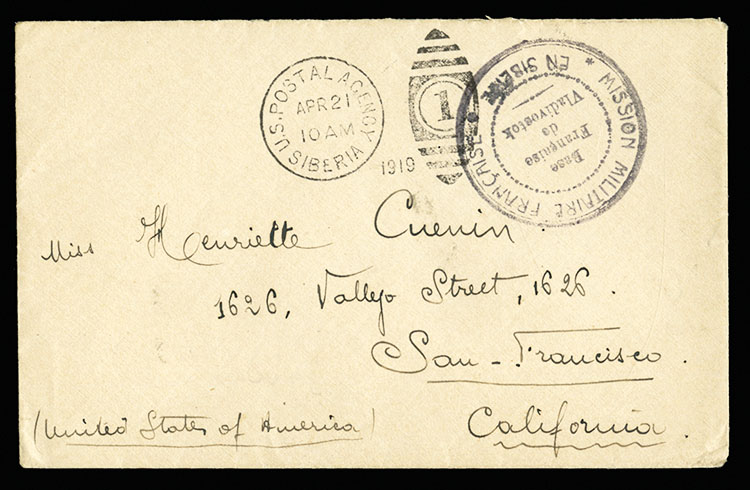 U.S. POSTAL AGENCY
APR 21
10 AM
SIBERIA
1919
1
* MISSION MILITAIRE FRANÇAISE *
EN SIBERIE
Base
Française
de
Vladivostok
Miss Henriette Cuenin
1626, Vallejo Street, 1626.
San-Francisco.
California.
(United States of America)